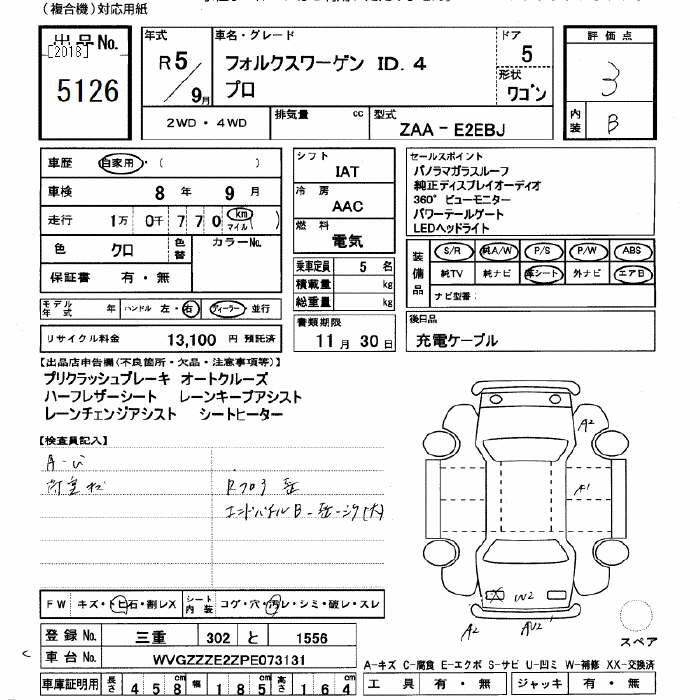 (複合機)対応用紙
出品No.
[2018]
5126
年式
R5/9月
車名・グレード
フォルクスワーゲン ID.4
プロ
ドア
5
形状
ワゴン
2WD・4WD
排気量 cc
型式
ZAA-E2EBJ
評価点
3
内装
B
車歴 自家用・( )
車検 8年 9月
走行 1万 0千 7 7 0 km マイル
色 クロ 色替 カラーNo.
保証書 有・無
モデル年式 年 ハンドル 左・右 ディーラー・並行
リサイクル料金 13,100 円 預託済
シフト
IAT
冷房
AAC
燃料
電気
乗車定員 5 名
積載量 kg
総重量 kg
書類期限
11月30日
セールスポイント
パノラマガラスルーフ
純正ディスプレイオーディオ
360° ビューモニター
パワーテールゲート
LEDヘッドライト
装備品
S/R 純A/W P/S P/W ABS
純TV 純ナビ 革シート 外ナビ エアB
ナビ型番:
後日品
充電ケーブル
【出品店申告欄(不良箇所・欠品・注意事項等)】
プリクラッシュブレーキ オートクルーズ
ハーフレザーシート レーンキープアシスト
レーンチェンジアシスト シートヒーター
【検査員記入】
FW キズ・トビ石・割レX シート内装 コゲ・穴・汚レ・シミ・破レ・スレ
登録No. 三重 302 と 1556
車台No. WVGZZZE2ZPE073131
車庫証明用 長さ 458cm 幅 185cm 高さ 164cm
A2
A1
X
A2
スペア
A-キズ C-腐食 E-エクボ S-サビ U-凹ミ W-補修 XX-交換済
工具 有・無 ジャッキ 有・無